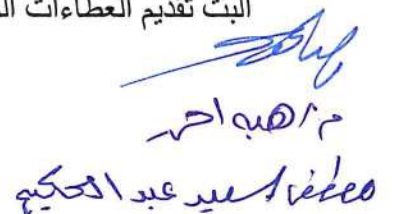 البت تقديم العطاءات ال
م/هبه احمد
مصطفى السيد عبد الحكيم